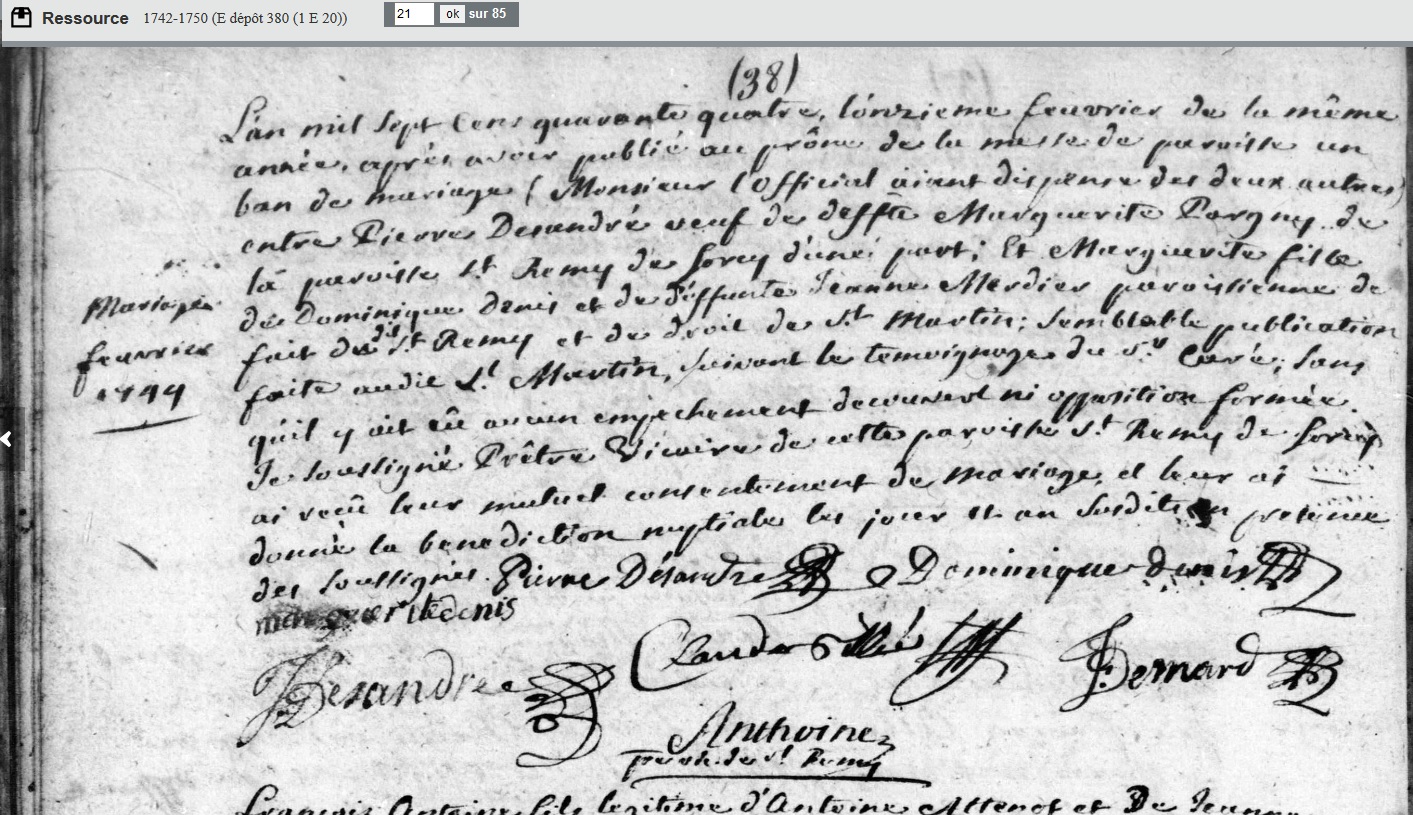 Ressource 1742-1750 (E dépôt 380 (1 E 20)) 21 ok sur 85
(38)
L'an mil sept cens quarante quatre, l'onzieme feuvrier de la même
année, aprés avoir publié au prône de la messe de paroisse un
ban de mariage (Monsieur l'Official aiant dispensé des deux autres)
entre Pierre Desandré veuf de deffte Marguerite Pargny de
la paroisse St Remy de Sorcy d'une part; Et Marguerite fille
de Dominique Denis et de deffunte Jeanne Merdier paroissienne de
fait dudit St Remy et de droit de St Martin; semblable publication
faite audit St Martin, suivant le temoignage du Sr Curé; sans
qu'il y ait eû aucun empechement decouvert ni opposition formée.
Je soussigné Prêtre Vicaire de cette paroisse St Remy de Sorcy
ai reçû leur mutuel consentement de mariage, et leur ai
donné la benediction nuptiale les jour et an susdits en presence
des soussignés. Pierre Désandre Dominique denis
marguerite denis
Mariage
feuvrier
1744
Claude
J Desandre
J: Bernard
Anthoine
St Remy
François Antoine fils legitime d'Antoine Attenot et De Jeanne